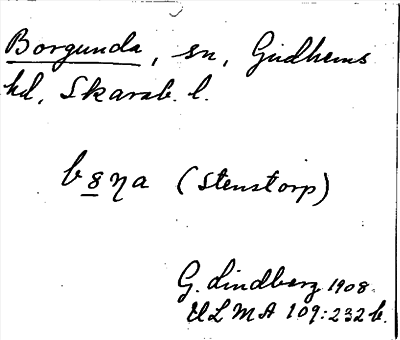 Borgunda, sn, Gudhems
hd, Skarab. l.
(Stenstorp)
G. Lindberg 1908.
ULMA 109:232 b.